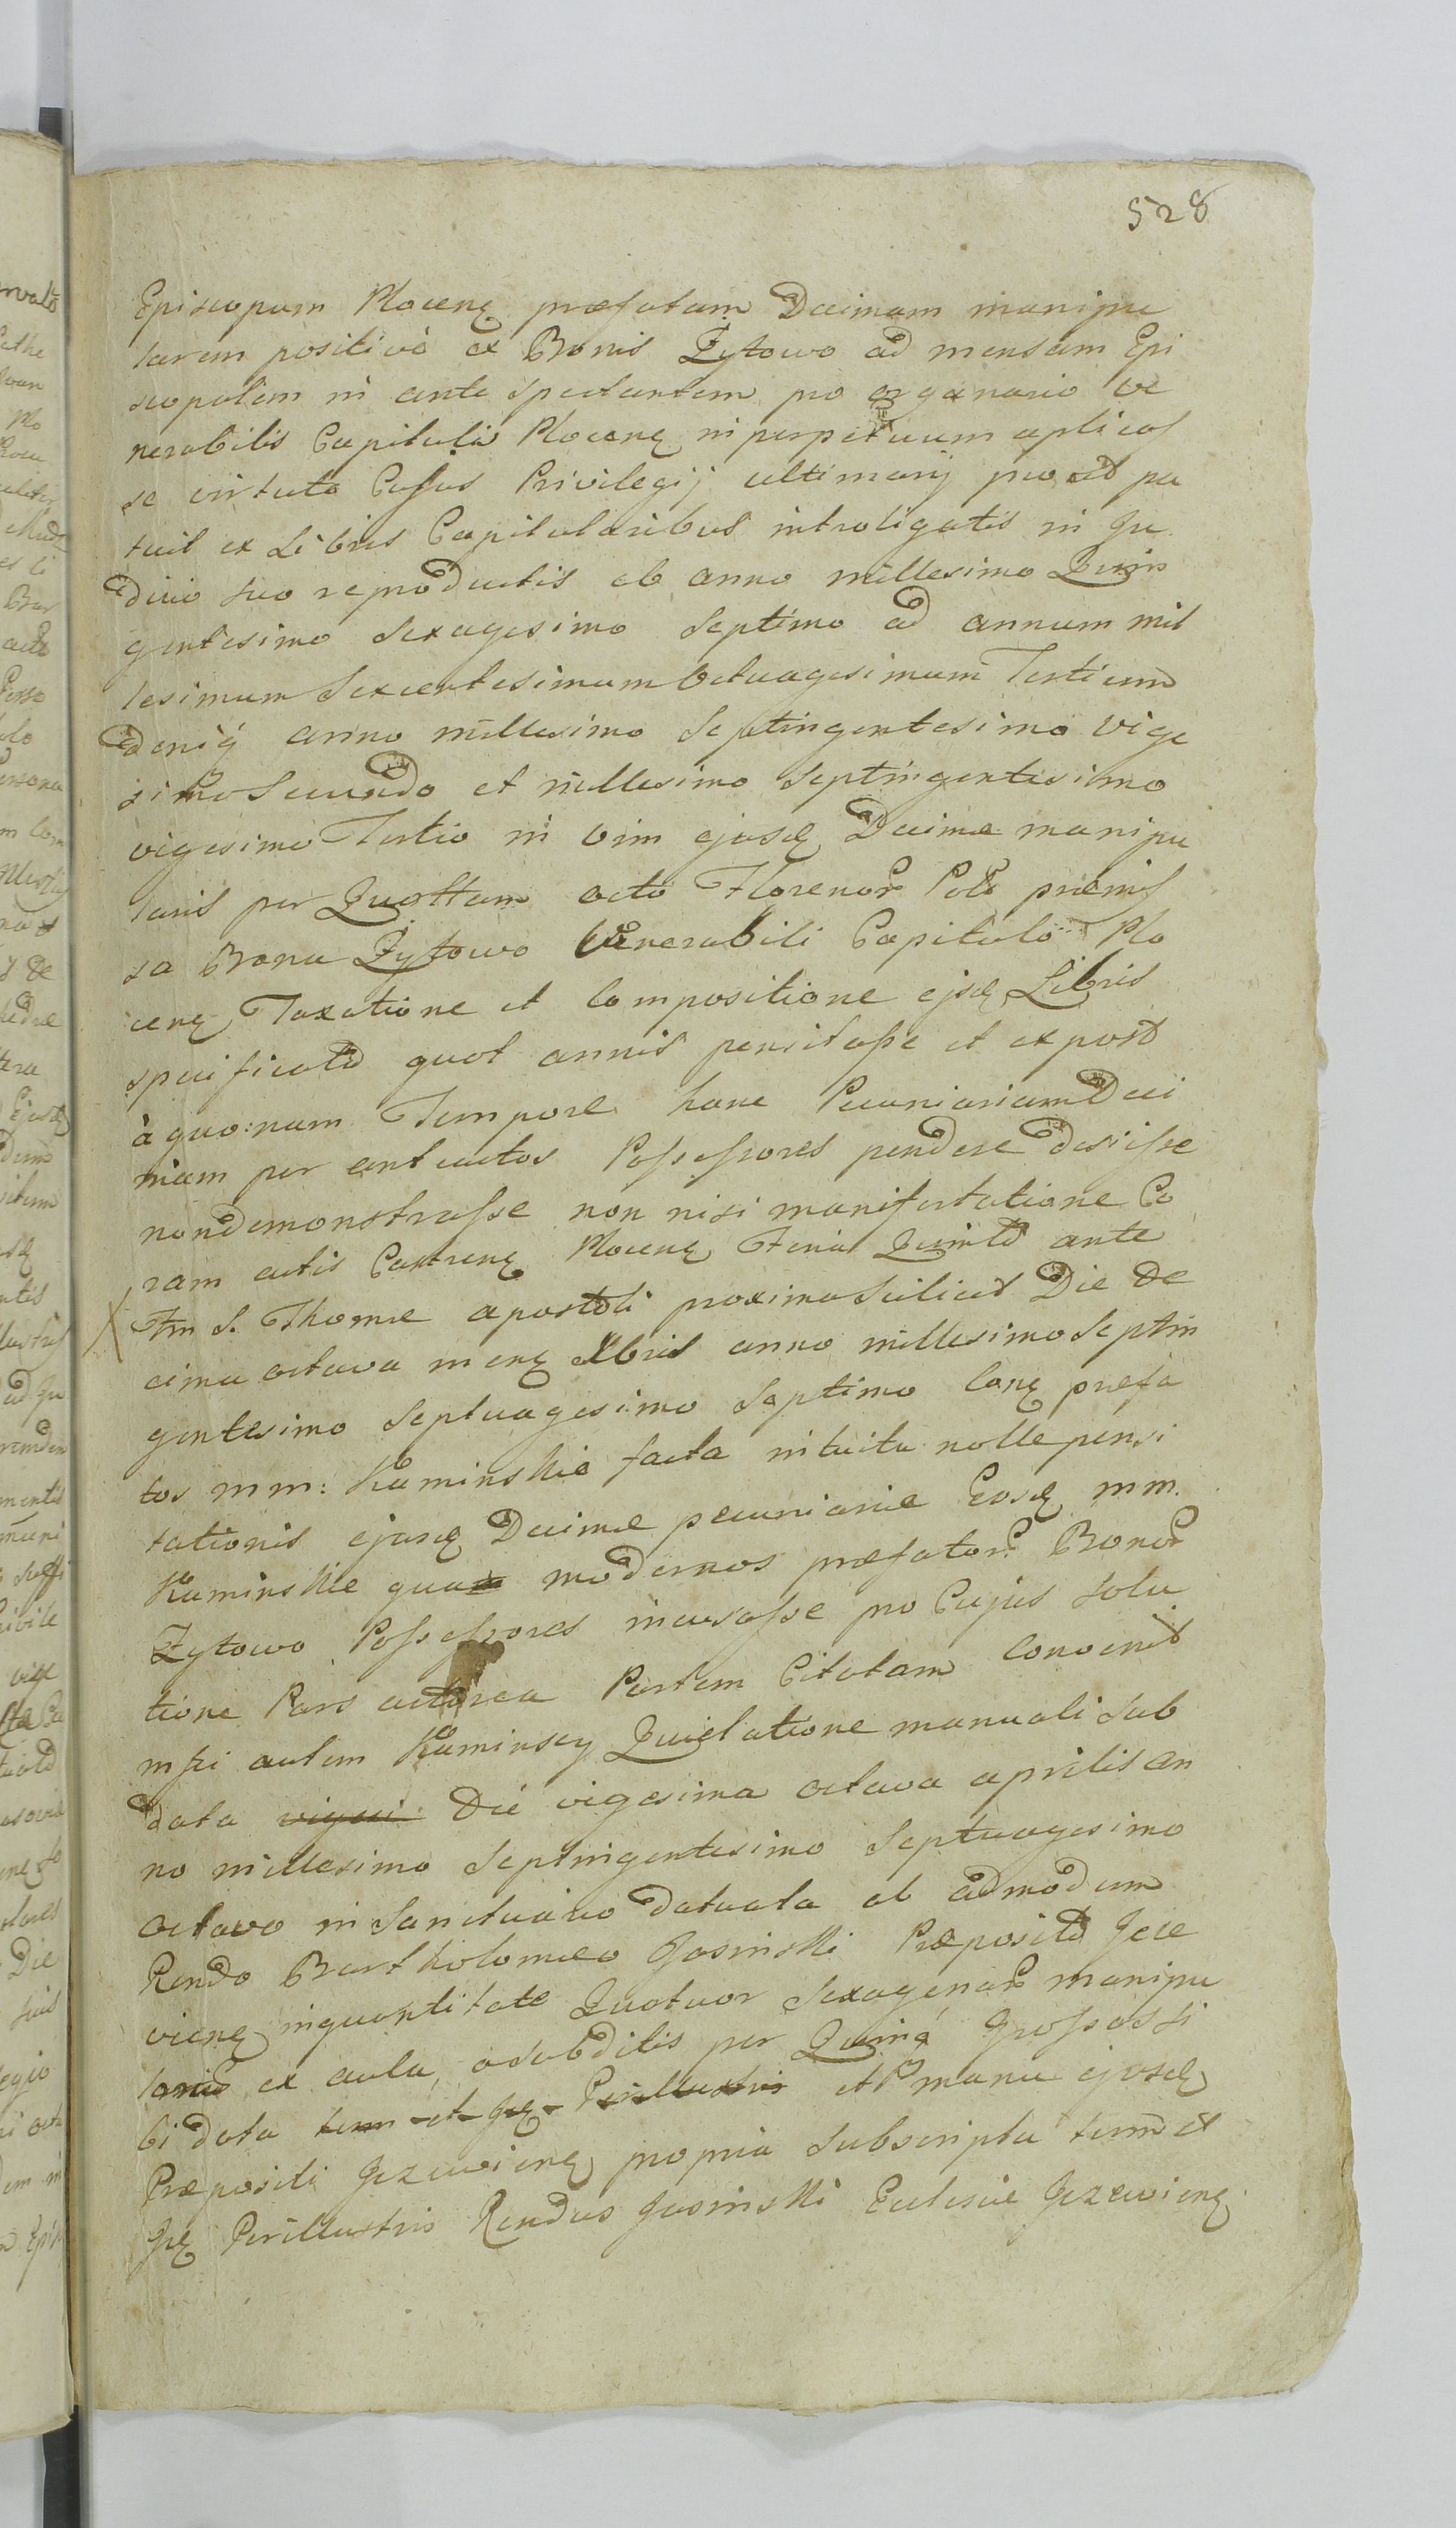 528
Episcopum Plocenę præfatam Decimam manipu
larem positivè ex Bonis Zytowo ad mensam Epi
scopalem in ante spectantem pro organario ve
nerabilis Capituli Plocenę in perpetuum aplicas
se virtute Cujus Privilegij ultimarij prout pa
tuit ex Libris Capitularibus introligatis in Ju
dicio suo reproductis ab anno millesimo Quin
gentesimo Sexagesimo Septimo ad annum mil
lesimum Sexcentesimum Octuagesimum Tertium
deniq anno millesimo Septingentesimo vige
simo Secundo et millesimo Septingentesimo
vigesimo Tertio in vim ejusdę Decimæ manipu
laris per Quottam octo Florenor Pol præmis
sa Bona Zytowo Venerabili Capitulo Plo
cenę Taxatione et Compositione ejusdę Libris
specificata quot annis pensitasse et ex post
à quo:nam Tempore hanc Pecuniariam Deci
mam per antenatos Possessores pendere desiisse
non demonstrasse non nisi manifestatione Co
ram actis Castrenę Plocenę Feria Quinta ante
Ftm S. Thomæ apostoli proxima Scilicet Die De
cima octava menę Xbris anno millesimo Septin
gentesimo Septuagesimo Septimo Conę præfa
tos mm: Kaminskie facta intuitu nolle pensi
tationis ejusdę Decimæ pecuniariæ Eosdę mm.
Kaminskie qua modernos præfator Bonor
Zytowo Possessores incusasse pro Cujus Solu
tione Pars actorea Partem Citatam Convenit
mfci autem Kaminscy Quietatione manuali sub
data vigesi Die vigesima octava aprilis an
no millesimo Septingentesimo Septuagesimo
octavo in Sanctuario datuata ab admodum
Rendo Bartholomæo Gosinski Præposito Jeze
vienę in quantitate Quatuor Sexagenar manipu
laris ex aula, a subditis per Quinq Grossos si
bi data tum et Grę Perillustris et manu ejusdę
Præpositi Jezewienę propria Subscripta tum et
Grę Perillustris Rendus Gosinski Ecclesiæ Jezewienę